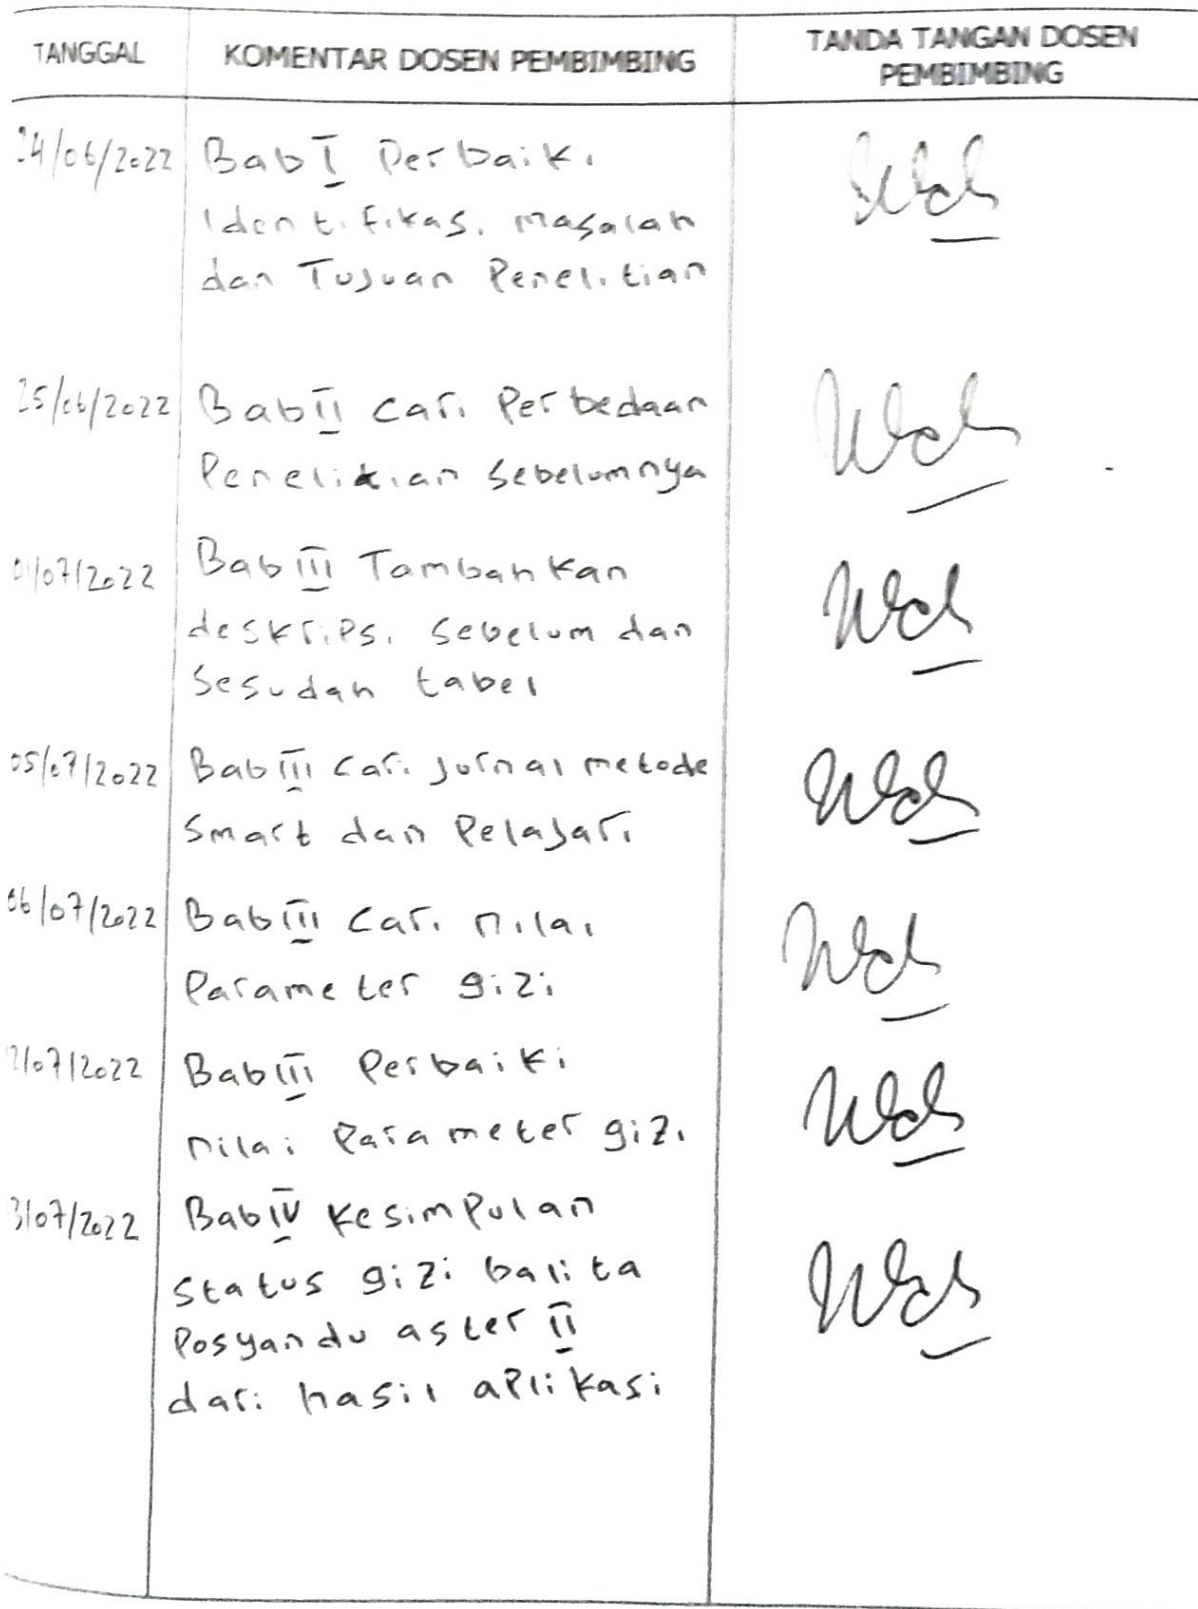 TANGGAL
KOMENTAR DOSEN PEMBIMBING
TANDA TANGAN DOSEN
PEMBIMBING
24/06/2022
Bab I Perbaiki
Identifikasi masalah
dan Tujuan Penelitian
25/06/2022
Bab II cari Perbedaan
Penelitian sebelumnya
01/07/2022
Bab III Tambahkan
deskripsi sebelum dan
sesudah tabel
05/07/2022
Bab III cari jurnal metode
Smart dan Pelajari
06/07/2022
Bab III cari nilai
Parameter gizi
2/07/2022
Bab III Perbaiki
nilai Parameter gizi
3/07/2022
Bab IV Kesimpulan
status gizi balita
Posyandu aster II
dari hasil aplikasi